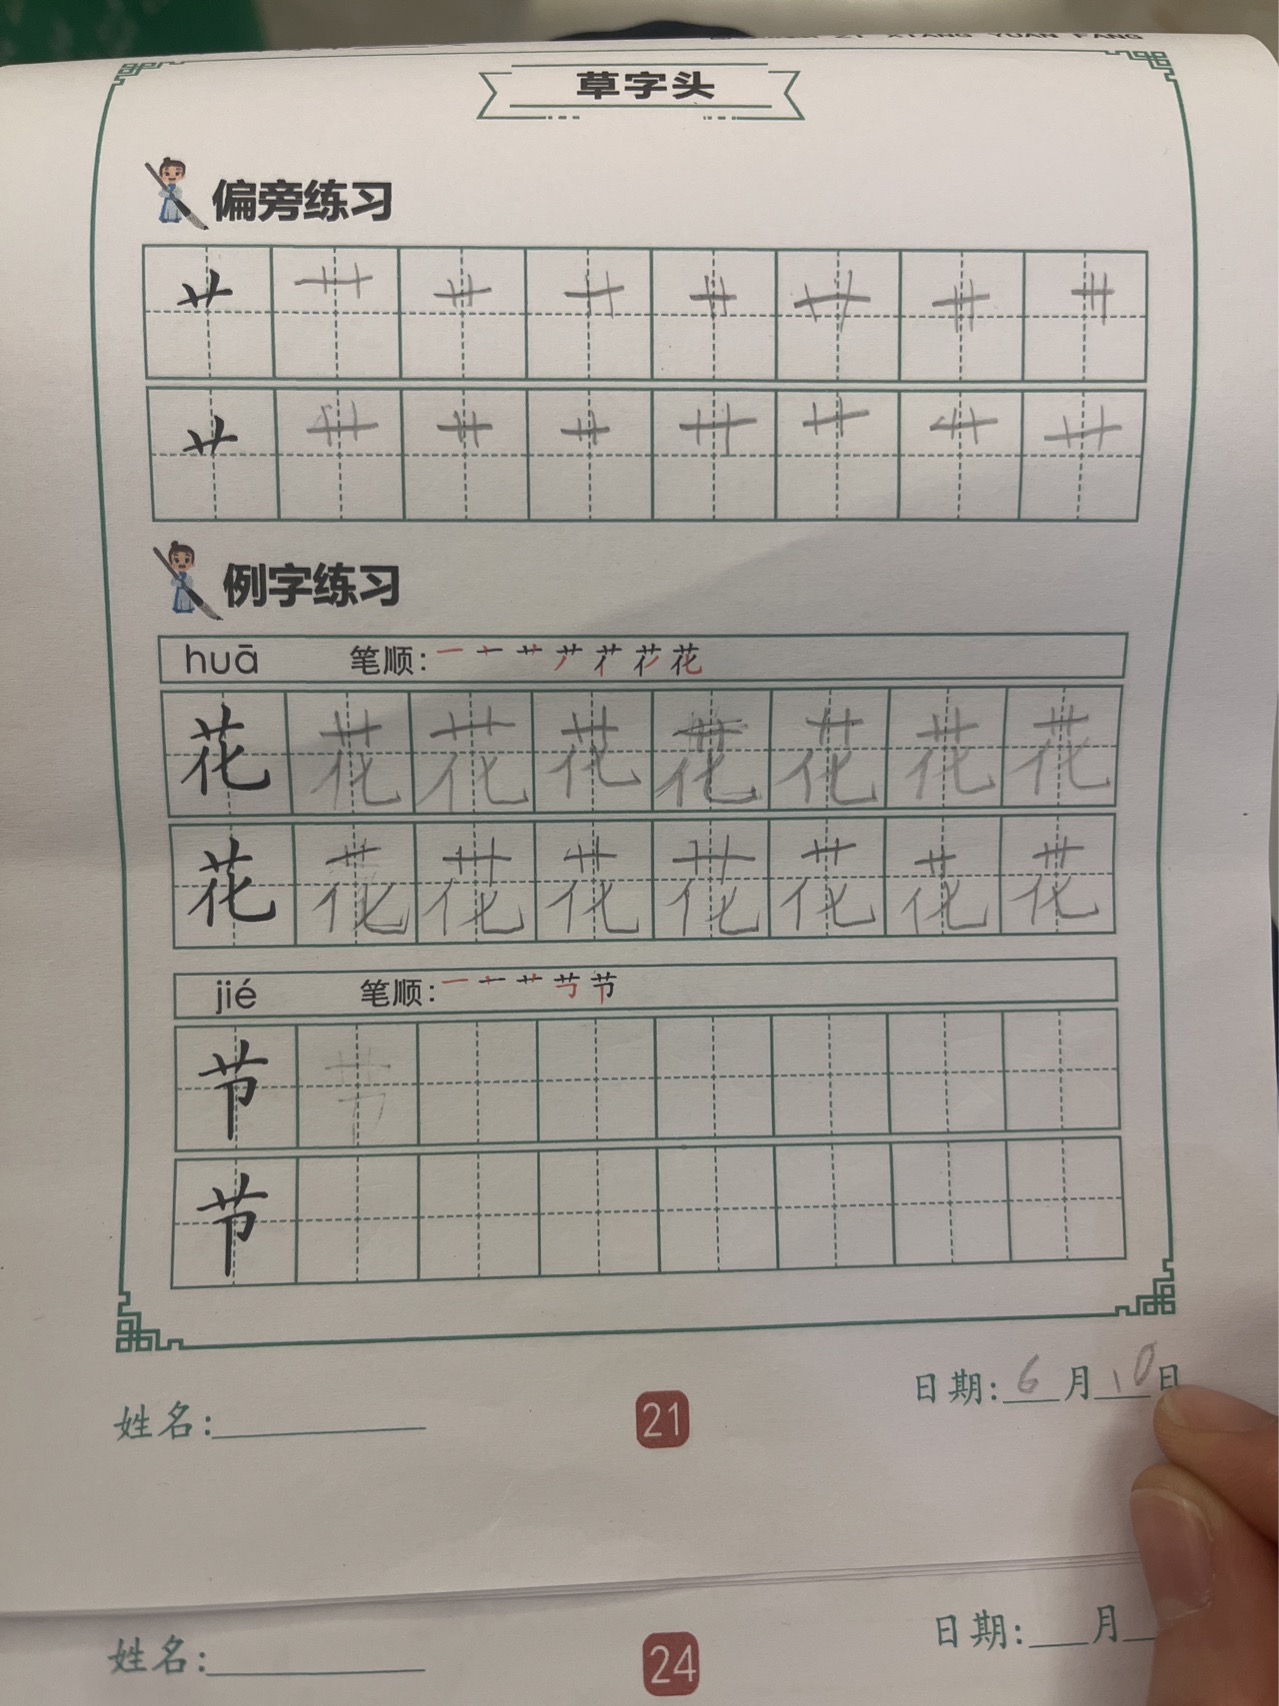 XIANG YUAN FANG
草字头
偏旁练习
艹 艹 艹 艹 艹 艹 艹 艹
艹 艹 艹 艹 艹 艹 艹 艹
例字练习
huā 笔顺:
花 花 花 花 花 花 花 花
花 花 花 花 花 花 花 花
jié 笔顺:
节 节
节
日期: 6 月 10 日
姓名:
21
日期: 月
姓名:
24